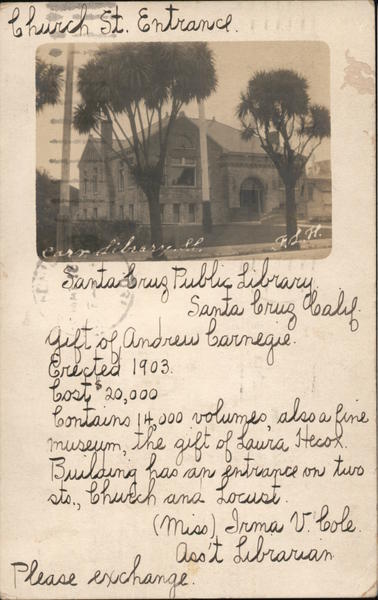 Church St. Entrance.
Carr Library S.C.
F.S.H.
Santa Cruz Public Library.
Santa Cruz Calif.
Gift of Andrew Carnegie.
Erected 1903.
Cost $20,000
Contains 14,000 volumes, also a fine
museum, the gift of Laura Hecox.
Building has an entrance on two
sts., Church and Locust.
(Miss) Irma V. Cole.
Ass't Librarian
Please exchange.